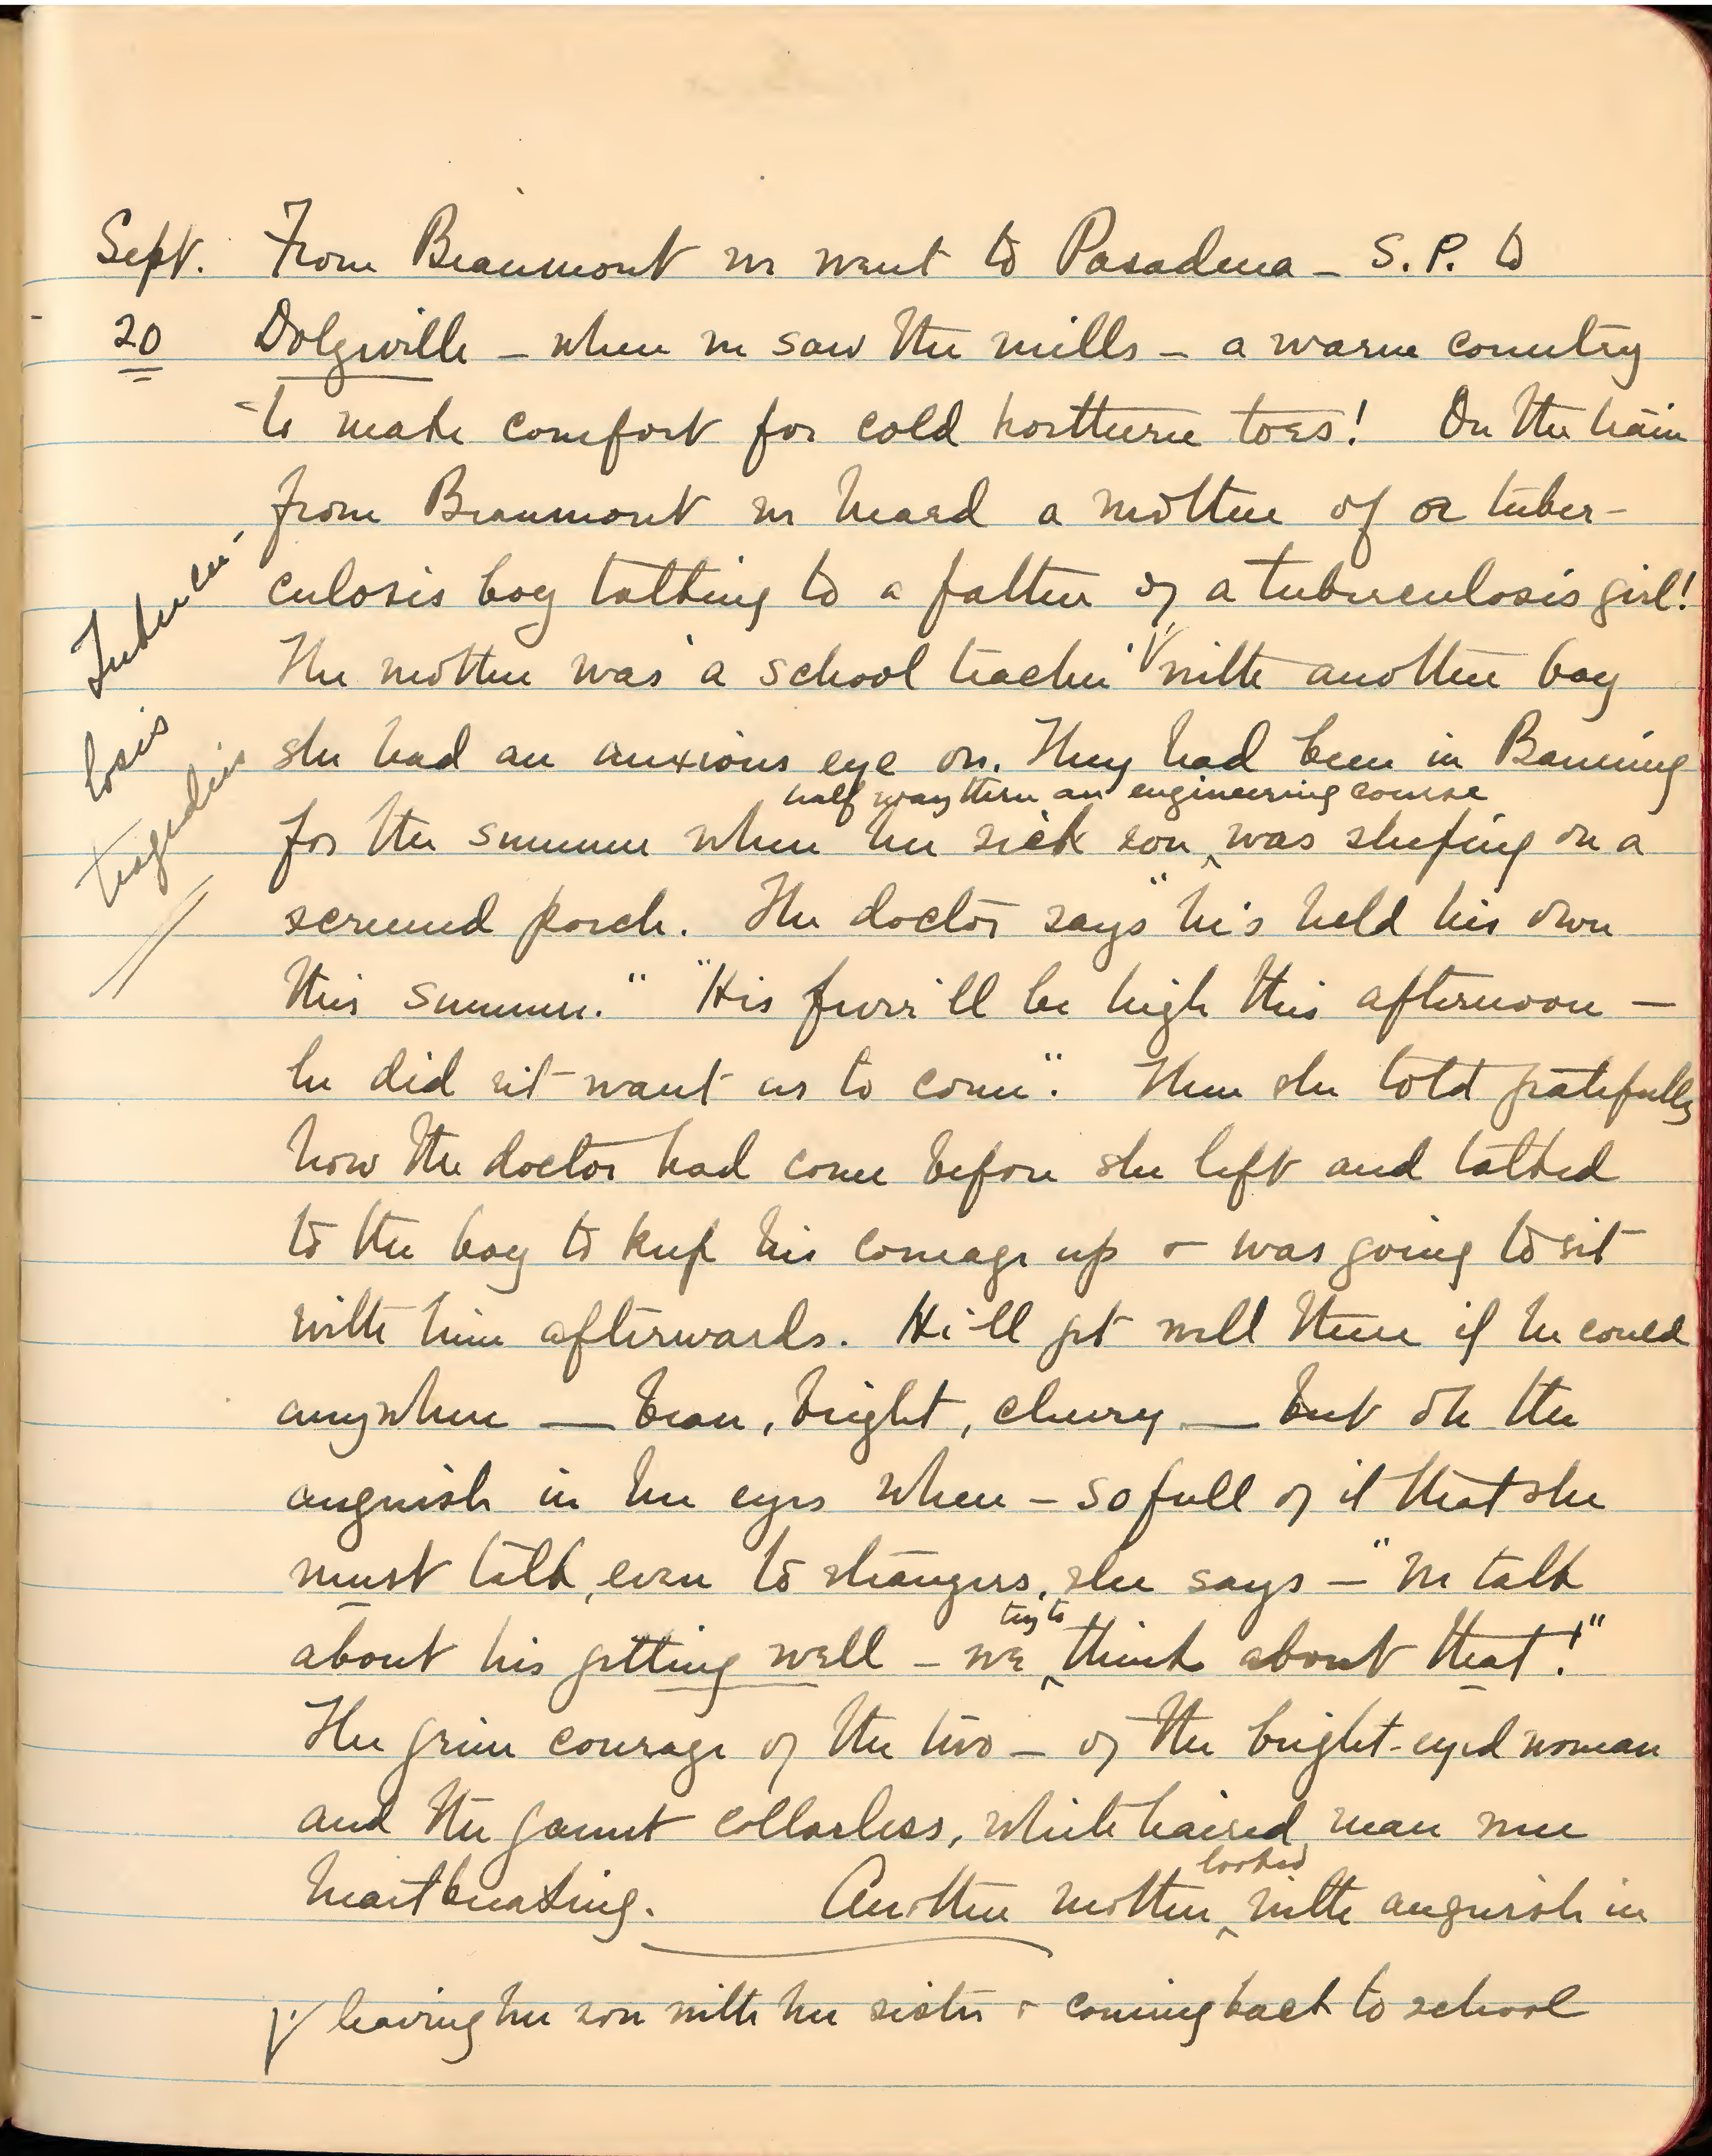 Sept. From Beaumont we went to Pasadena – S.P. to
20 Dolgeville – where we saw the mills – a warm country
to make comfort for cold northern toes! On the train
from Beaumont we heard a mother of a tuber-
culosis boy talking to a father of a tuberculosis girl!
Tubercu-
losis
tragedies
The mother was a school teacher √ with another boy
she had an anxious eye on. They had been in Banning
half way thru an engineering course
for the summer where her sick son ^ was sleeping on a
screened porch. The doctor says "he's held his own
this summer." "His fever'll be high this afternoon –
he did n't want us to come". Then she told gratefully
how the doctor had come before she left and talked
to the boy to keep his courage up & was going to sit
with him afterwards. He'll get well there if he could
anywhere — brave, bright, cheery — but oh the
anguish in her eyes when – so full of it that she
must talk, even to strangers, she says – "We talk
try to
about his getting well – we ^ think about that!"
The grim courage of the two – of the bright-eyed woman
and the gaunt collarless, white haired man were
looked
heartbreaking. Another mother ^ with anguish in
√ leaving her son with her sister & coming back to school